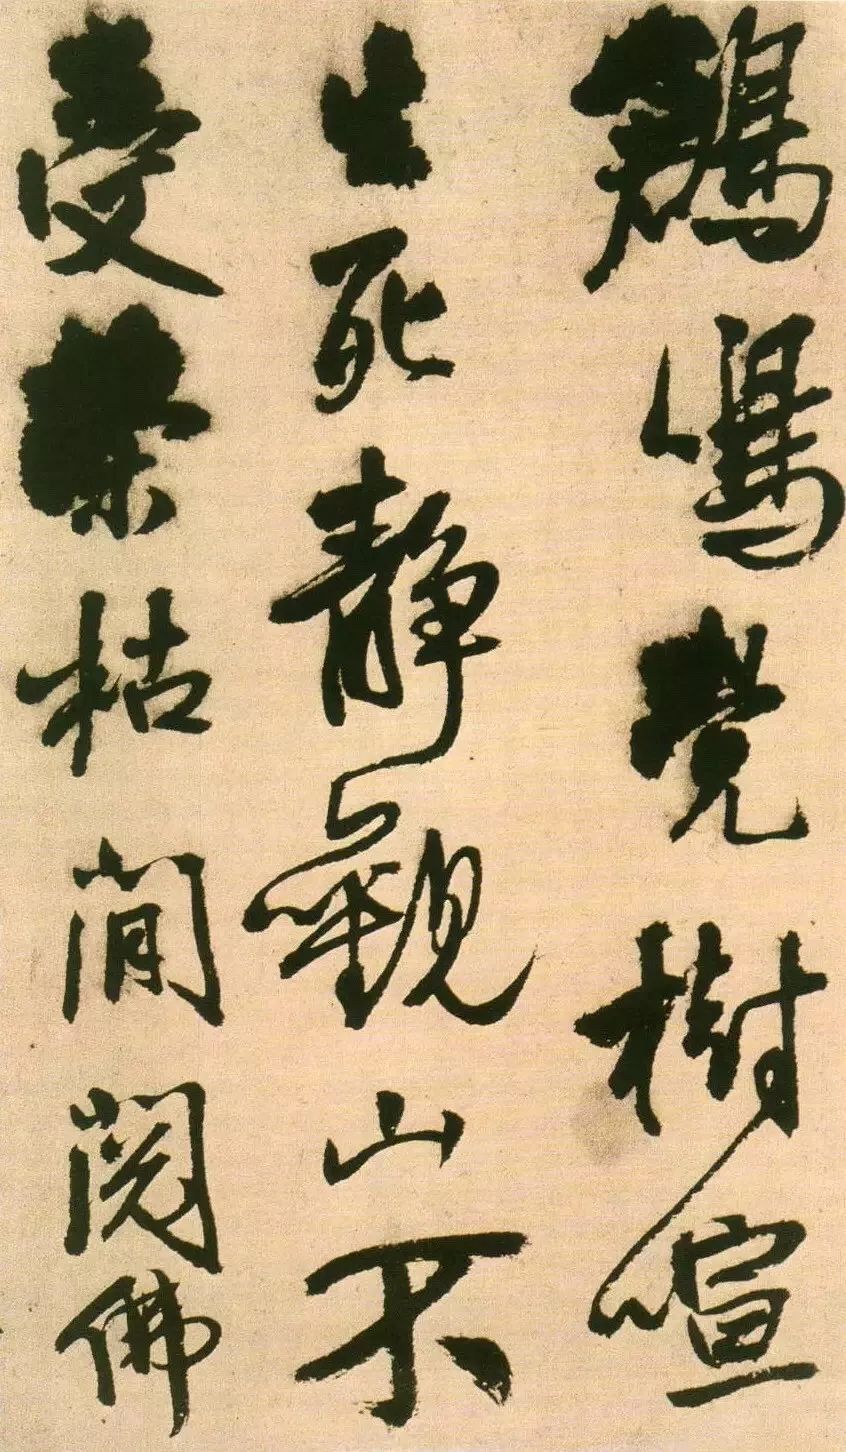 鷄鳴覺樹喧
生死靜觀山不
受榮枯閒閱佛